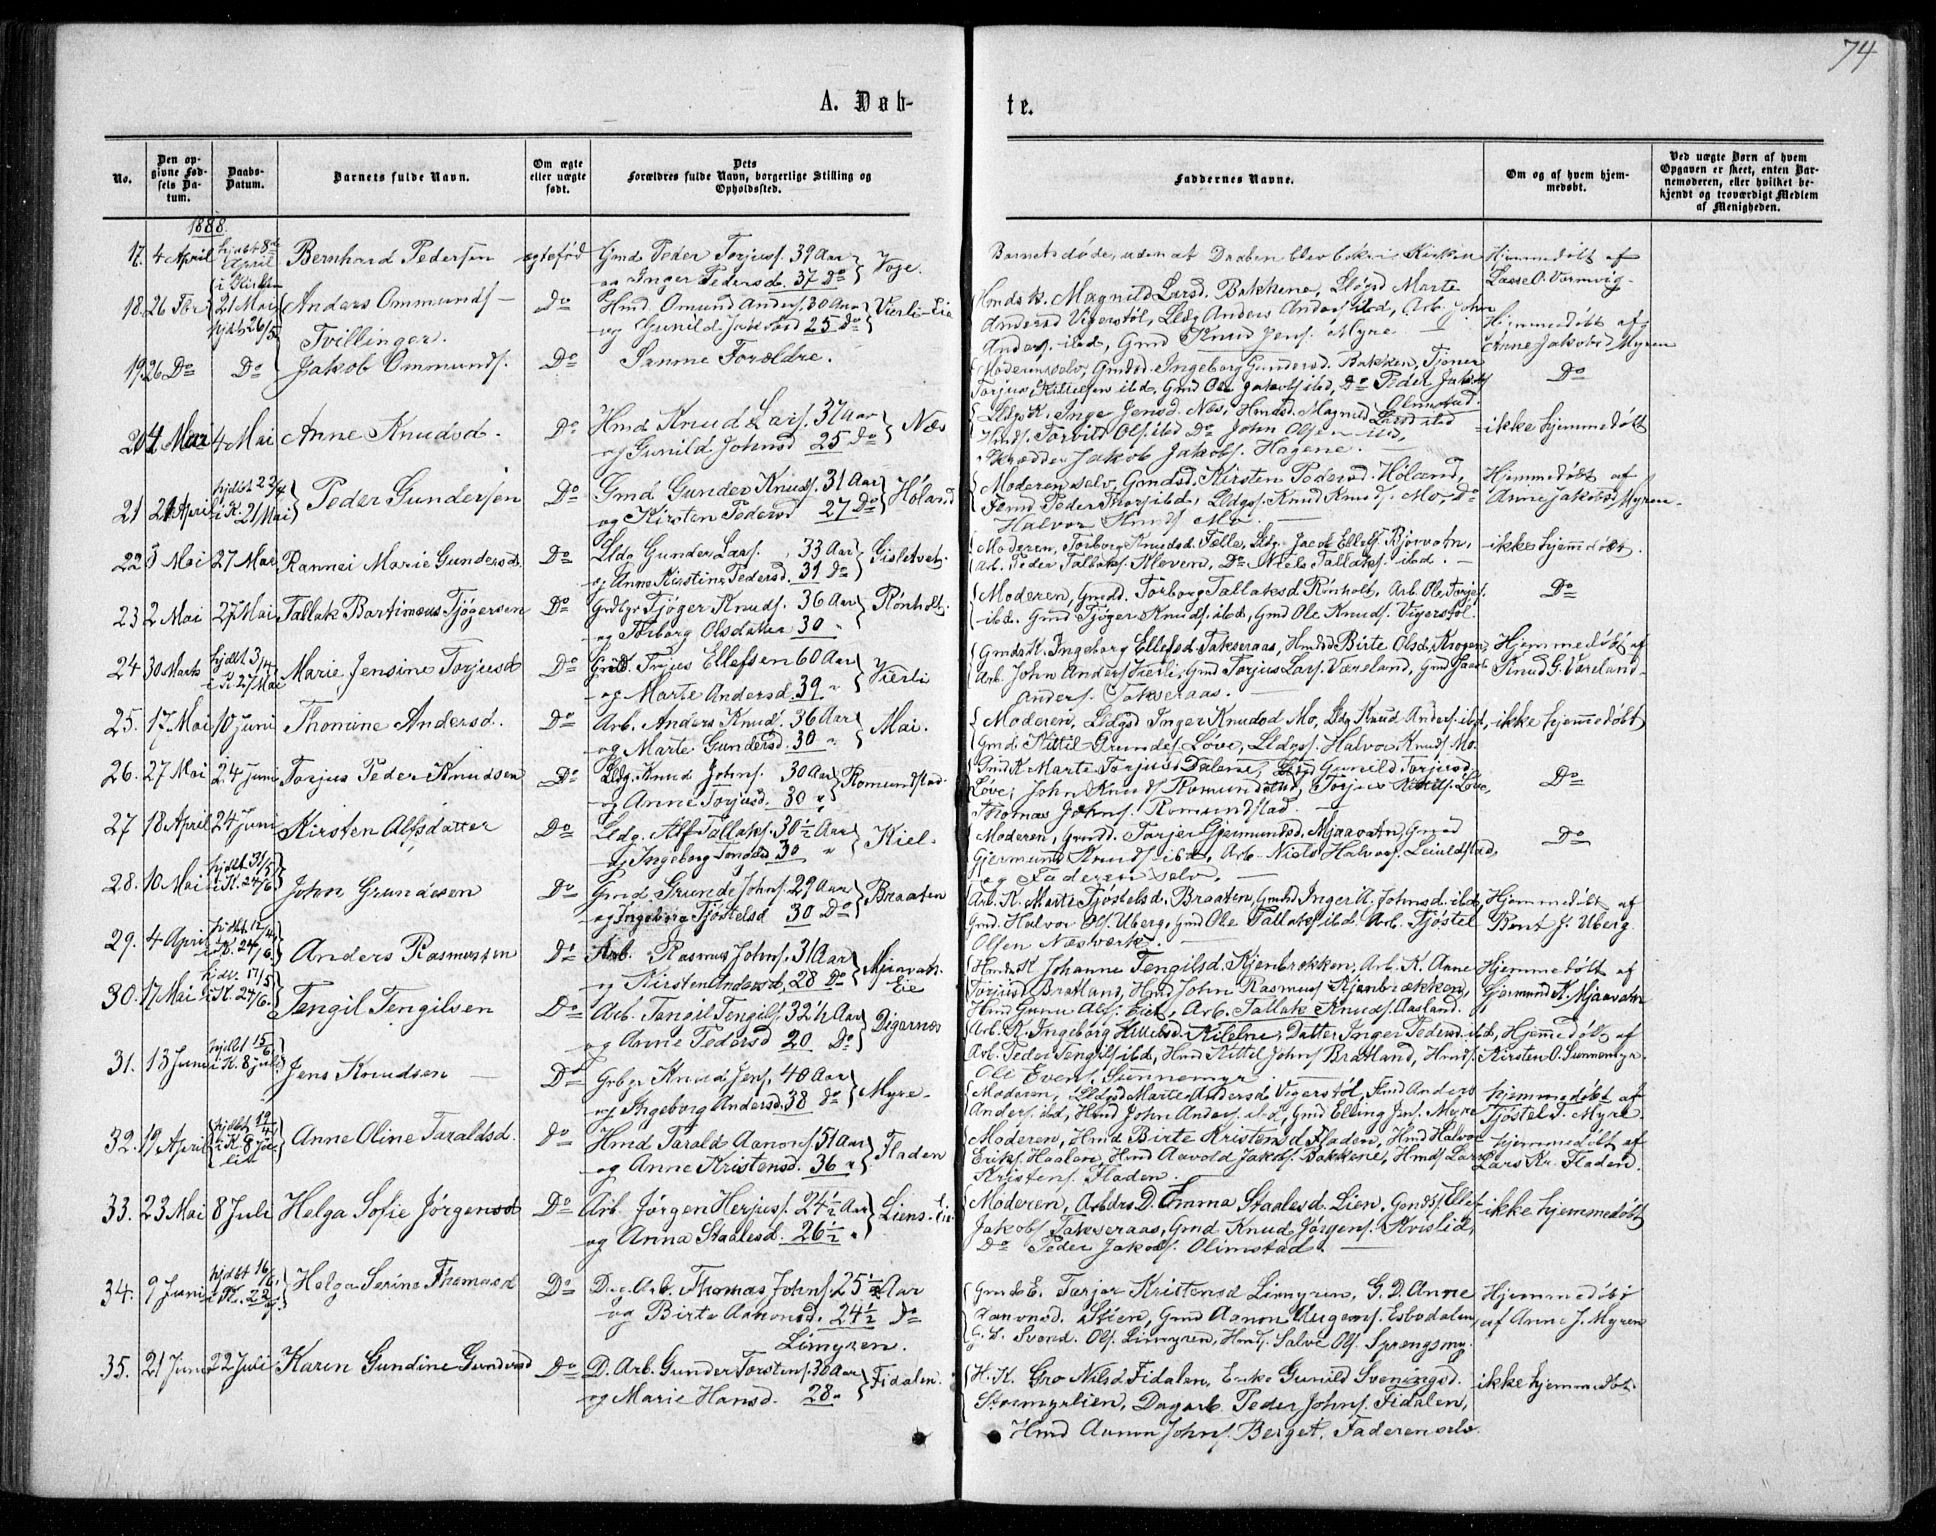 74
A. Døb-
te.
No.
Den op-
givne Fød-
sels Da-
tum.
Daabs-
Datum.
Barnets fulde Navn.
Om ægte
eller uægte
født.
Dets
Forældres fulde Navn, borgerlige Stilling og
Opholdssted.
Faddernes Navne.
Om og af hvem hjem-
medøbt.
Ved uægte Børn af hvem
Opgaven er skeet, enten Bar-
nemoderen, eller hvilket be-
kjendt og troværdigt Medlem
af Menigheden.
1888.
17. 4 April hjdbt 8de April i Kirken Bernhard Pedersen ægtefød Gmd Peder Torjuss. 39 Aar
og Inger Pedersd. 37 Do Voje.
Barnet døde, uden at Daaben blev bekr. i Kirken
Hjemmedøbt af
Lasse O. Vormvig.
18. 26 21 Mai hjdt 26/5 Anders Ommunds. Do Hmd Omund Anders. 30 Aar
og Gunild Jakobsd 25 Do Vierli-Eie
Tvillinger.
Hmds K. Magnild Larsd. Bakkene, Marte
Andersd Vigerstøl, Anders Anders. ibd, Arb. John
Anders. ibd, Gmd Knud Jens. Myre
Hjemmedøbt af
Anne Jakobsd Myren
19. 26 Do Do Jakob Ommunds. Do Samme Forældre.
Moderen selv, Gmdsd. Ingeborg Gundersd. Bakken, Tjener
Torjus Kittilsen ibd, Gmd Ole Jakobs ibd, Do Peder Jakobs
Olimstad.
Do
20. 4 Mai 4 Mai Anne Knudsd. Do Hmd Knud Lars. 37 Aar
og Gunild Johnsd 25 Do Næs
K. Inge Jensd. Næs, Hmds. Magnild Larsd ibd
Hmds. Torvild Ols. ibd Do John Olsen ibd,
Skrædder Jakob Jakobs. Hagene.
ikke hjemmedøbt
21 April hjdbt 23/4 i K. 21 Mai Peder Gundersen Do Gmd Gunder Knuds. 31 Aar
og Kirsten Pedersd 27 Do Høland
Moderen selv, Gmdsd. Kirsten Pedersd. Høland,
Gmd Peder Thors. ibd, Knud Knuds. Mo, Do
Halvor Knuds Mo
Hjemmedøbt af
Anne Jakobsd Myren.
22 Mai 27 Mai Rannei Marie Gundersd. Do Gunder Lars. 33 Aar
og Anne Kirstine Pedersd. 31 Do Gisletvet.
Moderen, Torborg Knudsd. Felle, Jacob Ellefs. Bjorvatn,
Arb. Peder Tallaks. Kleven, Do Niels Tallaks. ibd.
ikke hjemdøbt.
23 2 Mai 27 Mai Tallak Bartimæus Tjøgersen Do Tjøger Knuds. 36 Aar
og Torborg Olsdatter 30 " Rønholt.
Moderen, Gmdd. Torborg Tallaksd Rønholt, Arb. Ole Torjes.
ibd. Gmd Tjøger Knuds. ibd, Gmd Ole Knuds. Vigerstøl.
Do
24 30 Marts hjdbt 3/4 i K 27 Mai Marie Jensine Torjusd Do Torjus Ellefsen 60 Aar
og Marte Andersd. 39 " Vierli
Gmds K. Ingeborg Ellefsd. Takseraas, Hmdd Birte Olsd. Krogen,
Arb. John Anders. Vierli, Gmd Torjus Lars. Væreland, Gmd
Anders. Takseraas.
Hjemmedøbt af
Knud G. Væreland
25. 17 Mai 10 Juni Thomine Andersd. Do Arb. Anders Knud. 36 Aar
og Marte Gundersd. 30 " Mai.
Moderen, Inger Knudsd Mo, Knud Anders. ibd,
Gmd. Kittil Grundes. Løve, Halvor Knuds. Mo.
ikke hjemmedøbt
26. 27 Mai 24 Juni Torjus Peder Knudsen Do Knud Johns. 30 Aar
og Anne Torjusd. 30 " Romundstad.
Gmds K Marte Torjusd Dalene, Gunild Torjusd.
Løve, John Knuds Romundstad, Torjus Kittils. Løve,
Thomas Johns. Romundstad.
Do
27 18 April 24 Juni Kirsten Alfsdatter Do Alf Tallaks. 30½ Aar
og Ingeborg 30 " Kiel.
Moderen, Gmdd. Torjer Gjermundsd. Mjaavatn, Gmd
Gjermund Knuds. ibd, Arb. Niels Halvors. Leiuldstad,
og Faderen selv.
Do
28. 10 Mai hjdbt 31/5 i K. 24/6 John Grundesen Do Gmd Grunde Johns. 29 Aar
og Ingeborg Tjøstelsd 30 Do Braaten
Arb. K. Marte Tjøstelsd. Braaten, Gmdd Inger A. Johnsd. ibd,
Gmd. Halvor Ols. Uberg, Gmd Ole Tallaks. ibd. Arb. Tjøstel
Olsen Næsværk.
Hjemmedøbt af
Bent J. Uberg.
29. 4 April hjdbt 12/4 i K. 24/6. Anders Rasmussen Do Arb. Rasmus Johns. 31 Aar
og Kirsten Andersd. 28 Do Mjaavatn-
Eie
Hmds K Johanne Tengilsd. Kjenbrokken, Arb. K. Anne
Torjusd Bratland, Hmd John Rasmus. Kjenbrækken,
Hmd Gunu Als. Eiet, Arb. Tallak Knuds. Aasland.
Hjemmedøbt af
Gjermund K. Mjaavatn
30. 17 Mai hjdbt. 17/5 i K. 24/6. Tengil Tengilsen Do Arb. Tengil Tengils. 32½ Aar
og Anne Pedersd 20 Do Digernæs
Arb. K. Ingeborg Kileine, Datter Inger Pedersd. ibd,
Arb. Peder Tengils. ibd, Hmd Kittel Johns Bratland, Hmds
Oli Evens. Sunnemyr
Hjemmedøbt af
Kirsten O. Sunnemyr
31. 13 Juni hjdbt 15/6 i K. 8 Juli Jens Knudsen Do Knud Jens. 40 Aar
og Ingeborg Andersd. 38 Do Myre.
Moderen, Marte Andersd. Vigerstøl, Gmd Anders
Anders. ibd, Hmd John Anders. ibd, Gmd Elling Jens. Myre
hjemmedøbt af
Tjøstel T. Myre.
32. 19 April hjdbt 19/4 i K. 8 Ju-
li Anne Oline Taraldsd. Do Hmd Tarald Aanons. 51 Aar
og Anne Kristensd. 36 " Fladen
Moderen, Hmd Birte Kristensd Fladen, Hmd Halvor
Eriks. Haslem, Hmd Aavold Jakobs. Bakkene, Hmds Lars
Kristens. Fladen.
hjemmedøbt af
Lars Kr. Fladen.
33. 23 Mai 8 Juli Helga Sofie Jørgensd Do Arb. Jørgen Herjuss. 24½ Aar
og Anna Staalesd. 26½ " Liens-Eie
Moderen, Arbdrs D. Emma Staalesd. Lien, Gmds S. Ellef
Jakobs. Takseraas, Gmd Knud Jørgens. Kvislid,
Do Peder Jakobs. Olimstad.
ikke hjemmedøbt
34. 9 Juni hjdbt 16/6. i K. 22/7 Helga Serine Thomasd Do Dag Arb. Thomas Johns. 25½ Aar
og Birte Aanonsd. 24½ Do
Limyren.
Gmds E. Tarjer Kristensd Limyren, G. D. Anne
Aanonsd. Stien, Gmd Aanon Augens. Esbodalen,
G. S. Svend. Ols. Limyren, Hmds. Salve Ols. Sprengsmy.
Hjemmedøbt
af Anne J. Myren
35. 21 Juni 22 Juli Karen Gundine Gundersd Do D. Arb. Gunder Torstens. 30 Aar
og Marie Hansd. 28 " Fidalen.
H. K. Gro Nilsd Fidalen, Enke Gunild Sveningsd.
Stormyrlien, Dagarb. Peder Johns. Fidalen,
Hmd Aanon Johns. Berget. Faderen selv.
ikke hjemmedøbt.